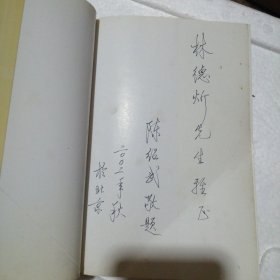 林德炘先生雅正
陈绍武敬题
二〇〇二年秋
于北京